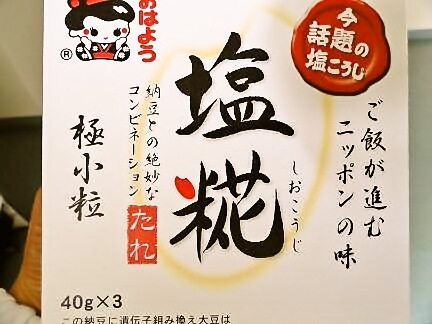 おはよう
®
今
話題の
塩こうじ
ご飯が進む
ニッポンの味
塩糀
しおこうじ
納豆との絶妙な
コンビネーション
たれ
極小粒
40g×3
この納豆に遺伝子組み換え大豆は